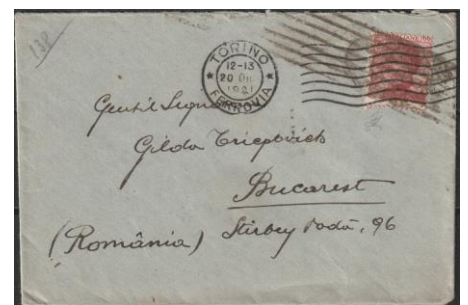 138
TORINO
12-13
20 DIC
1921
FERROVIA
Gentil Sign
Gilda
Bucarest
(România) Stirbey Vodă, 96